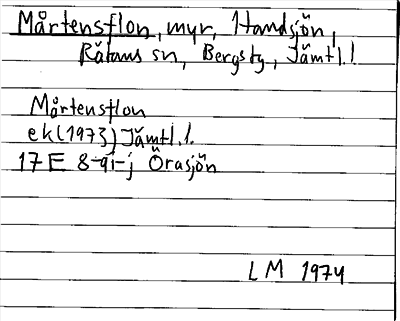 Mårtensflon, myr, Handsjön,
Rätans sn, Bergs tg, Jämtl.l
Mårtensflon
ek (1973) Jämtl.l.
17 E 8-9 i-j Örasjön
LM 1974